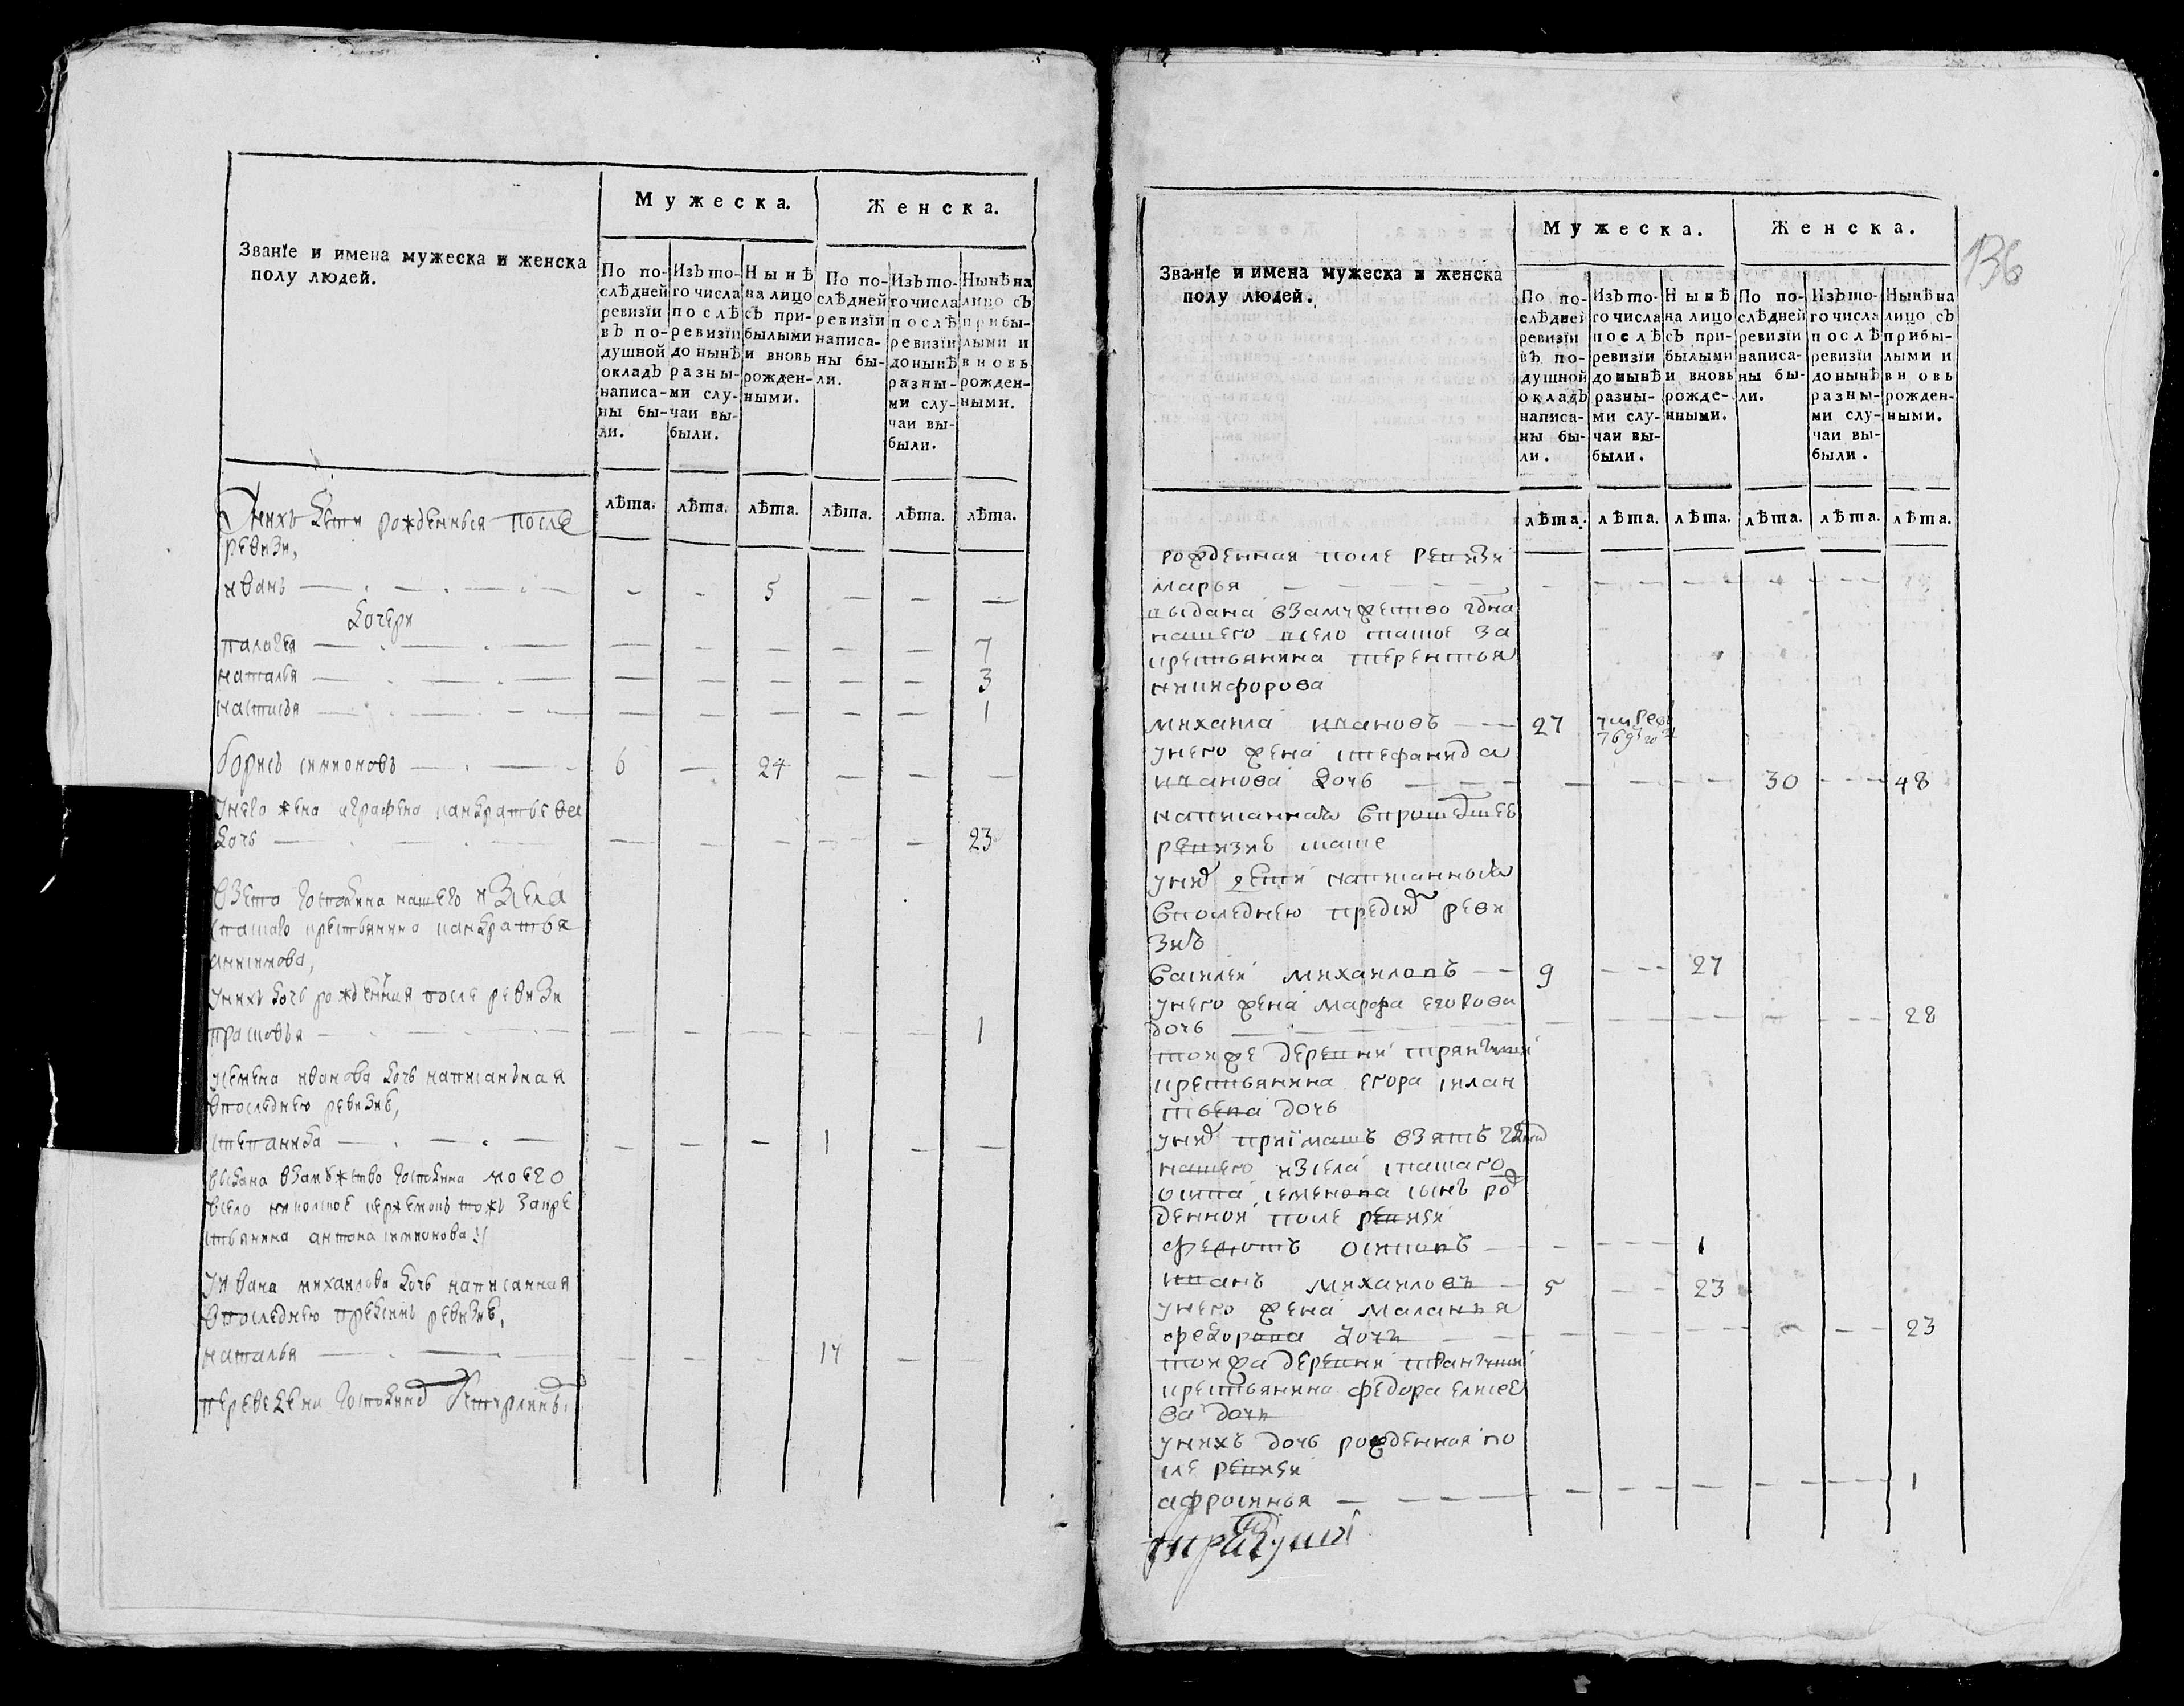 Званїе и имена мужеска и женска
полу людей.
Мужеска.
Женска.
По по-
слѣдней
ревизїи
въ по-
душной
окладъ
написа-
ны бы-
ли.
Изъ то-
го числа
послѣ
ревизїи
до нынѣ
разны-
ми слу-
чаи вы-
были.
Нынѣ
на лицо
съ при-
былыми
и вновь
рожден-
ными.
По по-
слѣдней
ревизїи
написа-
ны бы-
ли.
Изъ то-
го числа
послѣ
ревизїи
до нынѣ
разны-
ми слу-
чаи вы-
были.
Нынѣ на
лицо съ
прибы-
лыми и
вновь
рожден-
ными.
лѣта. лѣта. лѣта. лѣта. лѣта. лѣта.
Унихъ дети рожденныя после
ревизи,
иванъ — — 5 — — —
дочери
палагея — — — — — 7
наталья — — — — — 3
настасья — — — — — 1
борисъ симионовъ 6 — 24 — — —
унего жена аграфена панкратьева
дочь — — — — — 23
взета господина нашего изсела
спаскаго крестьянина панкратья
анисимова,
унихъ дочь рожденная после ревизи
прасковья — — — — — 1
усемена иванова дочь написанная
впоследнею ревизие,
степанида — — — 1 — —
выдана взамужство господина моего
всело никольское тожъ закре
стьянина антона симионова
уивана михаилова дочь написанная
впоследнею предсимъ ревизие,
наталья — — — 14 — —
переведена господиномъ
136
Званїе и имена мужеска и женска
полу людей.
Мужеска.
Женска.
По по-
слѣдней
ревизїи
въ по-
душной
окладъ
написа-
ны бы-
ли.
Изъ то-
го числа
послѣ
ревизїи
до нынѣ
разны-
ми слу-
чаи вы-
были.
Нынѣ
на лицо
съ при-
былыми
и вновь
рожде-
нными.
По по-
слѣдней
ревизїи
написа-
ны бы-
ли.
Изъ то-
го числа
послѣ
ревизїи
до нынѣ
разны-
ми слу-
чаи вы-
были.
Нынѣ на
лицо съ
прибы-
лыми и
вновь
рожден-
ными.
лѣта. лѣта. лѣта. лѣта. лѣта. лѣта.
рожденная после ревизи
марья — — — — — —
выдана взамужество
нашего всело спаское за
крестьянина терентья
никифорова
михаила ивановъ — 27
унего жена стефанида
иванова дочь — — — 30 — 48
написанная впрошедшее
ревизие
уних дети написанныя
впоследнею пред сим реви
зиѣ
василей михаиловъ — 9 — 27
унего жена марфа егорова
дочь — — — — — 28
тояже деревни
крестьянина егора силан
тьева дочь
уних приїмашъ взятъ
нашего изсела спаскаго
осипа семенова сынъ рож
денной после ревизи
федотъ осиповъ — — 1
иванъ михаиловъ — 5 — 23
унего жена маланья
федорова дочь — — — — — 23
тояжа деревни
крестьянина федора елисее
ва дочь
унихъ дочь рожденная по
сле ревизи
афросинья — — — — — 1